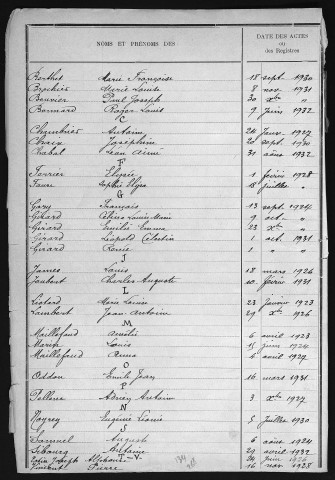 NOMS ET PRÉNOMS DES
DATE DES ACTES
ou
des Registres
Berthet Marie Françoise 18 sept 1930
Brochier Marie Louise 8 nov 1931
Bouvier Paul Joseph 30 Xbre "
Bonnard Roger Louis 9 Juin 1932
C
Chambrier Antoine 26 Janv 1927
Joséphine 20 sept 1930
Chabot Jean Aimé 31 août 1932
F
Ferrier Elysée 1 février 1928
Faure Sophie 18 juillet "
G
Gory François 13 sept 1924
Girard Louis Marie 9 oct "
Girard Emilie Emma 23 " "
Girard Léopold Célestin 1 oct 1931
Girard Renée 1 "
J
James Louis 18 mars 1926
Joubert Charles Auguste 10 février 1931
L
Liotard Marie Louise 23 Janvier 1923
Lambert Jean Antoine 29 Xbre 1926
M
Maillefaud Amélie 6 avril 1923
Louis 15 juin 1924
Maillefaud Anna 6 1927
O
Oddon Emile Jean 16 mars 1931
P
Antoine 3 Xbre 1927
N
Neyrey Eugénie Léonie 5 Juillet 1930
S
Samuel August 6 août 1924
Sibourg Antoine 29 avril 1932
T-V
Joseph Alphonse 24 Juin 1926
Vincent Pierre 16 nov 1928